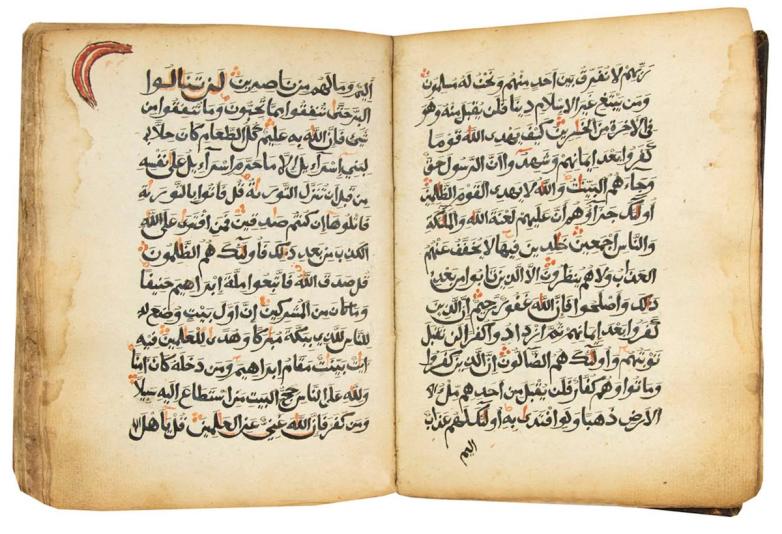 ربهم لا نفرق بين احد منهم ونحن له مسلمون
ومن يبتغ غير الاسلام دينا فلن يقبل منه وهو
في الاخرة من الخسرين كيف يهدى الله قوما
كفروا بعد ايمانهم وشهدوا ان الرسول حق
وجاءهم البينت والله لا يهدى القوم الظلمين
اولئك جزاؤهم ان عليهم لعنة الله والملئكة
والناس اجمعين خلدين فيها لا يخفف عنهم
العذاب ولا هم ينظرون الا الذين تابوا من بعد
ذلك واصلحوا فان الله غفور رحيم ان الذين
كفروا بعد ايمانهم ثم ازدادوا كفرا لن تقبل
توبتهم واولئك هم الضالون ان الذين كفروا
وماتوا وهم كفار فلن يقبل من احدهم ملء الا
الارض ذهبا ولو افتدى به اولئك لهم عذاب
اليم
اليم وما لهم من ناصرين لن تنالوا
البر حتى تنفقوا مما تحبون وما تنفقوا من
شيء فان الله به عليم كل الطعام كان حلا
لبني اسراءيل الا ما حرم اسراءيل على نفسه
من قبل ان تنزل التورىة قل فاتوا بالتورىة
فاتلوها ان كنتم صدقين فمن افترى على الله
الكذب من بعد ذلك فاولئك هم الظلمون
قل صدق الله فاتبعوا ملة ابراهيم حنيفا
وما كان من المشركين ان اول بيت وضع له
للناس للذي ببكة مبركا وهدى للعلمين فيه
ايت بينت مقام ابراهيم ومن دخله كان امنا
ولله على الناس حج البيت من استطاع اليه سبيلا
ومن كفر فان الله غني عن العلمين قل ياهل ال